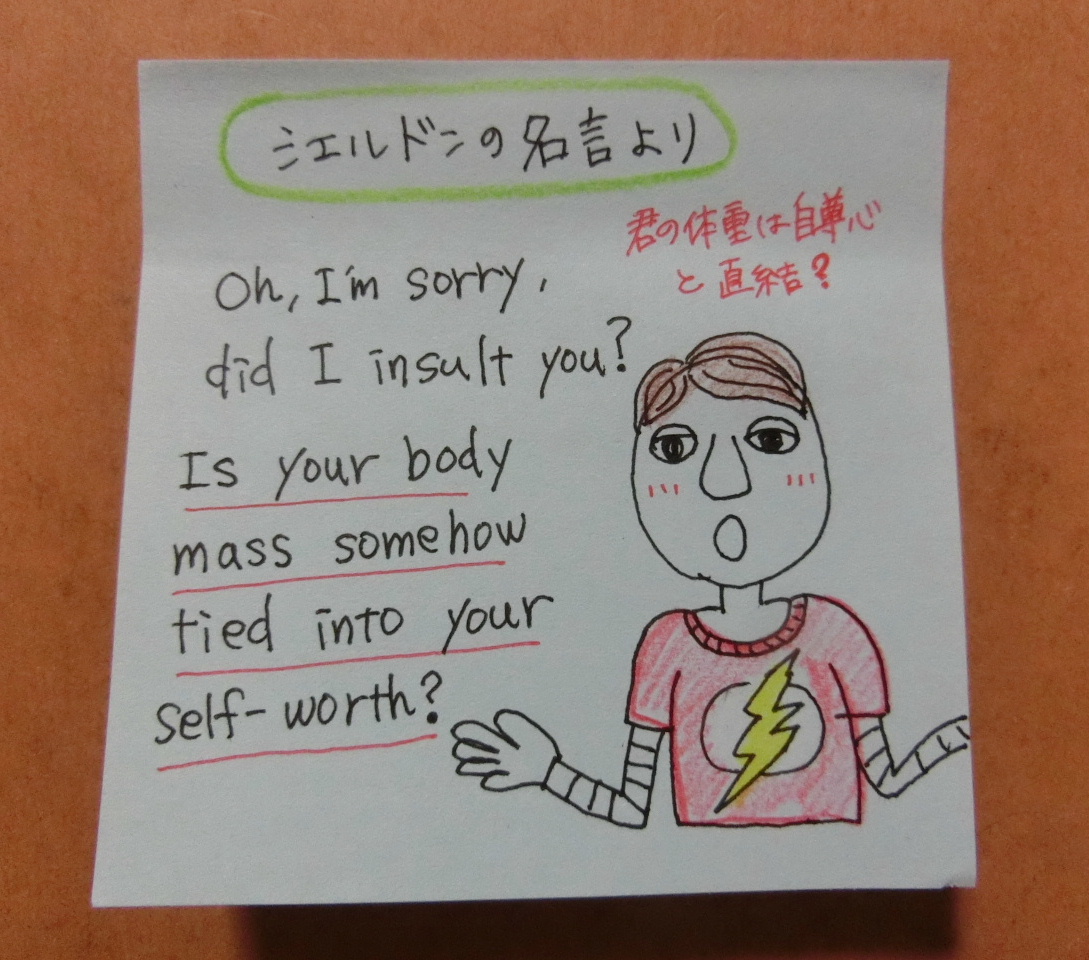 シェルドンの名言より
君の体重は自尊心
と直結?
Oh, I'm sorry,
did I insult you?
Is your body
mass somehow
tied into your
self-worth?